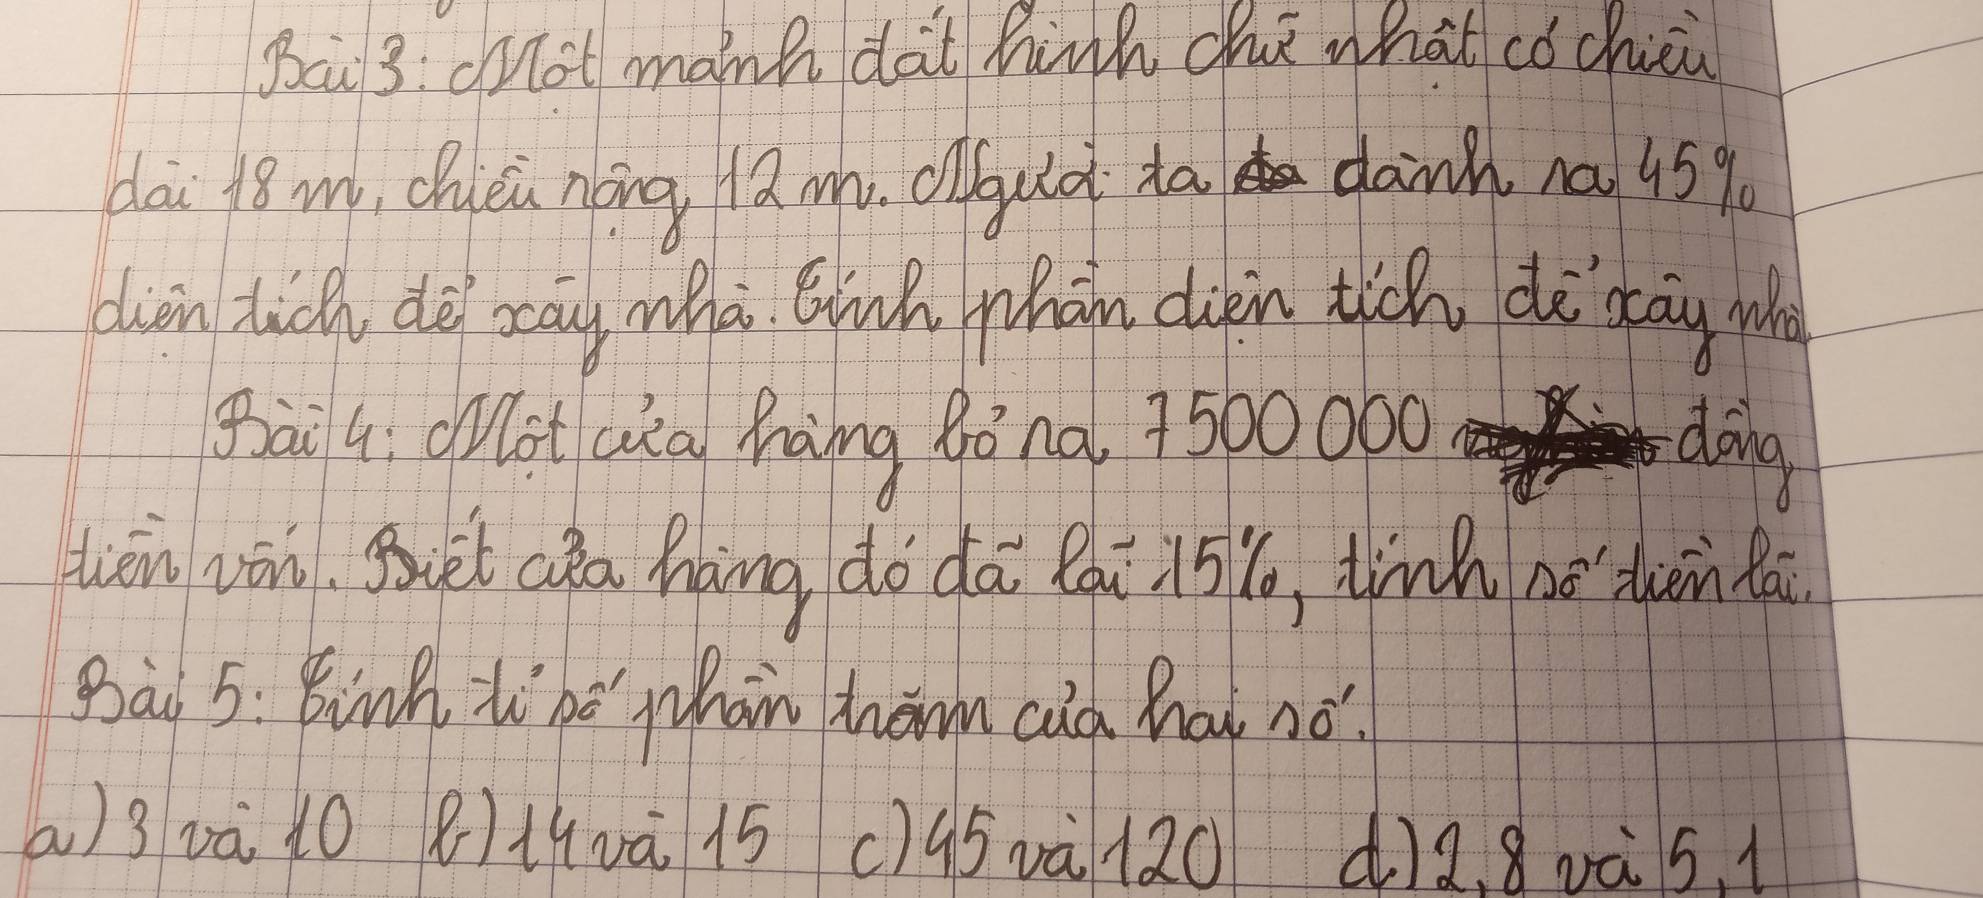 Bài 3: Một mảnh đất hình chữ nhật có chiều
dài 18 m, chiều rộng 12 m. Người ta dành ra 45%
diện tích để xây nhà. Tính phần diện tích để xây nhà.
Bài 4: Một cửa hàng bỏ ra 7500 000 đồng
tiền vốn. Biết cửa hàng đó đã lãi 15%, tính số tiền lãi.
Bài 5: Tính tỉ số phần trăm của hai số.
a) 3 và 10 b) 14 và 15 c) 45 và 120 d) 2,8 và 5,1